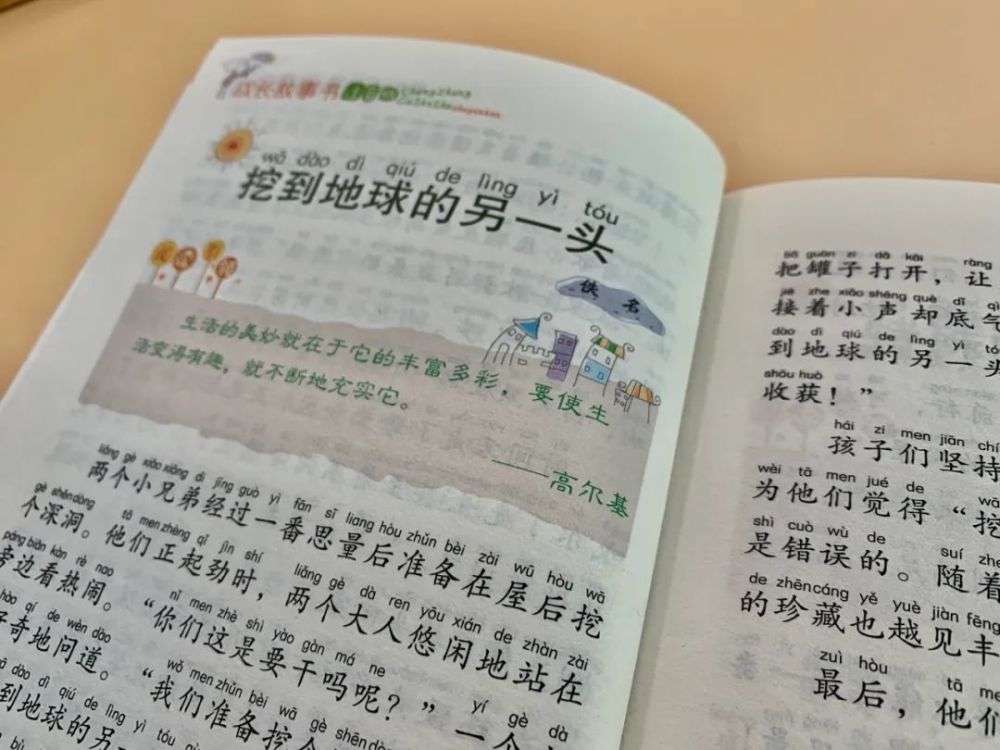 成长故事书 注音版
wā dào dì qiú de lìng yì tóu
挖到地球的另一头
佚名
生活的美妙就在于它的丰富多彩，要使生
活变得有趣，就不断地充实它。
——高尔基
liǎng gè xiǎo xiōng dì jīng guò yì fān sī liang hòu zhǔn bèi zài wū hòu wā
两个小兄弟经过一番思量后准备在屋后挖
gè shēn dòng tā men zhèng qǐ jìn shí liǎng gè dà ren yōu xián de zhàn zài
个深洞。他们正起劲时，两个大人悠闲地站在
páng biān kàn rè nao nǐ men zhè shì yào gàn má ne yí gè dà
旁边看热闹。“你们这是要干吗呢？”一个
hào qí de wèn dào wǒ men zhǔn bèi wā gè shēn dòng
好奇地问道。“我们准备挖个
dào dì qiú de lìng yì tóu
到地球的另一
bǎ guàn zi dǎ kāi ràng
把罐子打开，让
jiē zhe xiǎo shēng què dǐ qì
接着小声却底气
dào dì qiú de lìng yì tóu
到地球的另一头
shōu huò
收获！”
hái zi men jiān chí
孩子们坚持
wèi tā men jué de wā
为他们觉得“挖
shì cuò wù de suí zhe
是错误的。随着
de zhēn cáng yě yuè jiàn fēng
的珍藏也越见丰
zuì hòu tā men
最后，他们